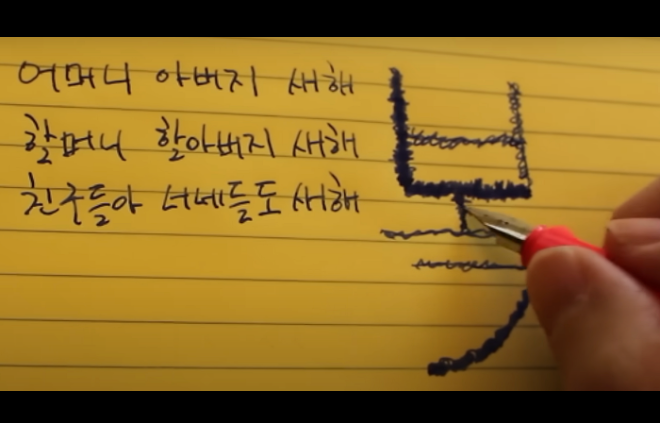 어머니 아버지 새해
할머니 할아버지 새해
친구들아 너네들도 새해
복